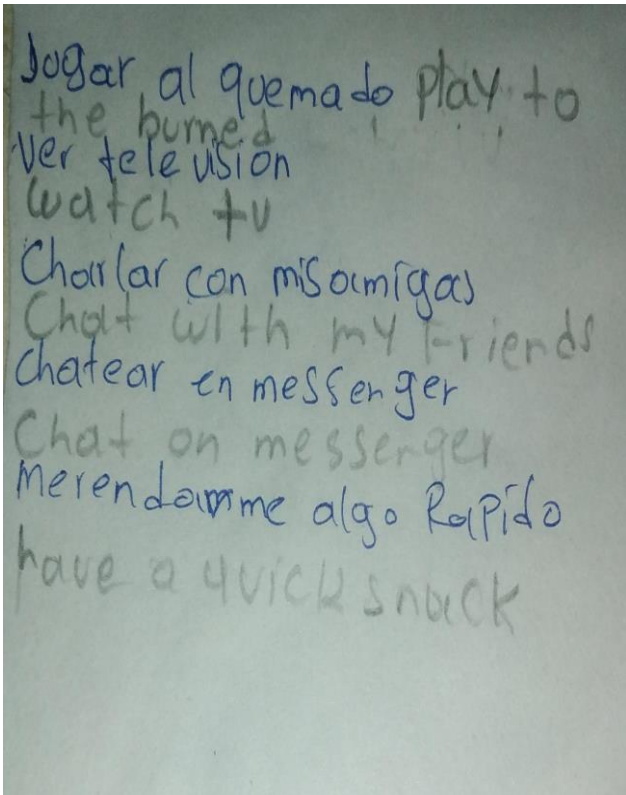 Jogar al quemado play to
the burned
Ver television
watch tv
Charlar con mis amigas
Chat with my Friends
Chatear en messenger
Chat on messenger
Merendarme algo Rapido
have a quick snack